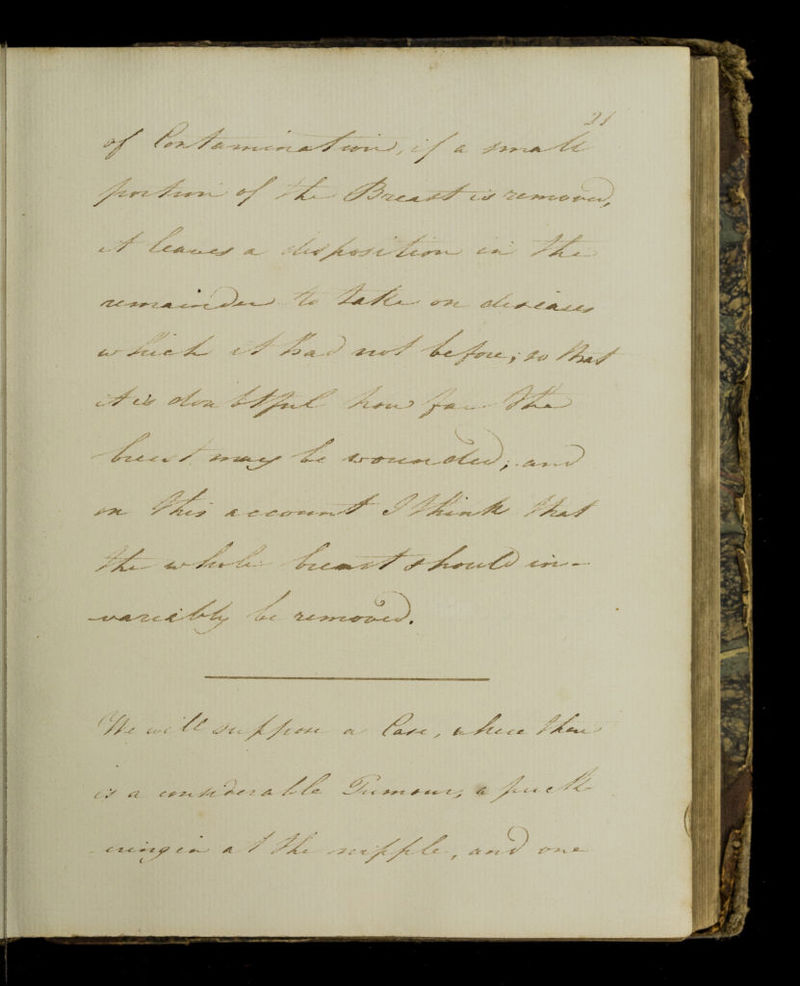 21
of Contamination, if a small
portion of the Breast is removed,
it leaves a disposition in the
remainder to take on diseases
which it had not before; so that
it is doubtful how far the
breast may be wounded; and
on this account I think that
the whole breast should in-
-variably be removed.
We will suppose a Case, where there
is a considerable Tumour, a puck
-ering in at the nipple, and one